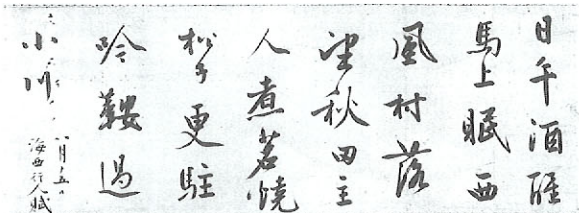 日午酒醒
馬上眠西
風村落
望秋田主
人煮茗燒
松子更駐
吟鞍過
小川
八月五日
海西行人賦